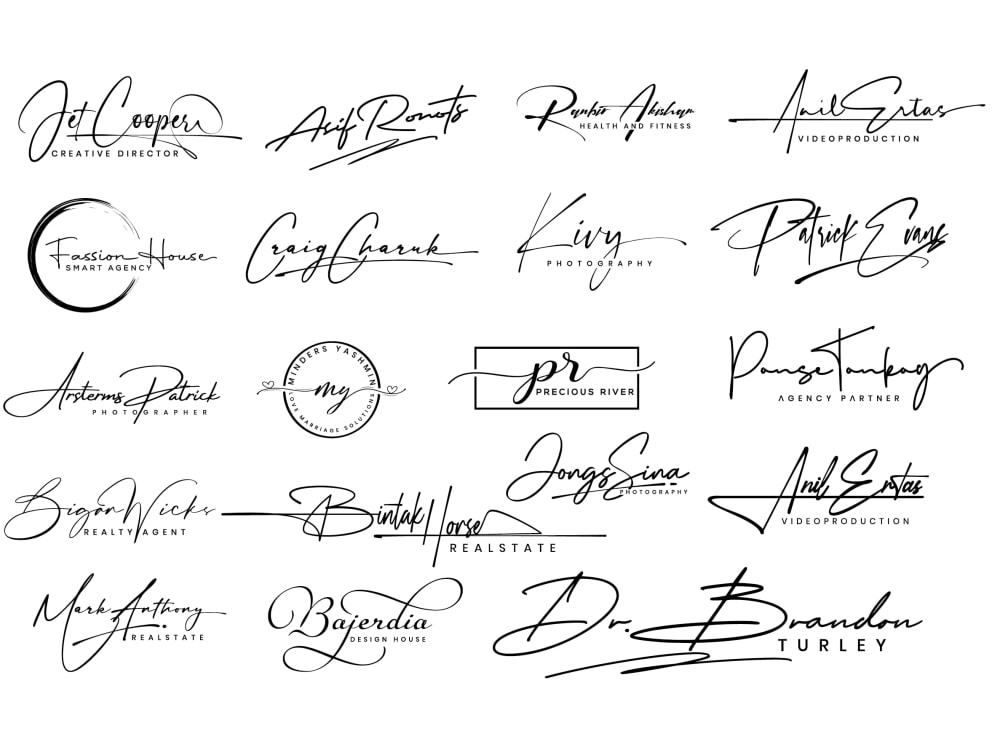 Jet Cooper
CREATIVE DIRECTOR
Asif Ronots
Ranbir Akisham
HEALTH AND FITNESS
Anil Ertas
VIDEOPRODUCTION
Fassion House
SMART AGENCY
Craig Charuk
Kivy
PHOTOGRAPHY
Patrick Evans
Arsterms Patrick
PHOTOGRAPHER
MINDERS YASHMIN
my
LOVE MARRIAGE SOLUTIONS
pr
PRECIOUS RIVER
Ponse Tonkoy
AGENCY PARTNER
Bigan Wicks
REALTY AGENT
Bintak Horse
REALSTATE
Jongs Sina
PHOTOGRAPHY
Anil Ertas
VIDEOPRODUCTION
Mark Anthony
REALSTATE
Bajerdia
DESIGN HOUSE
Dr. Brandon
TURLEY